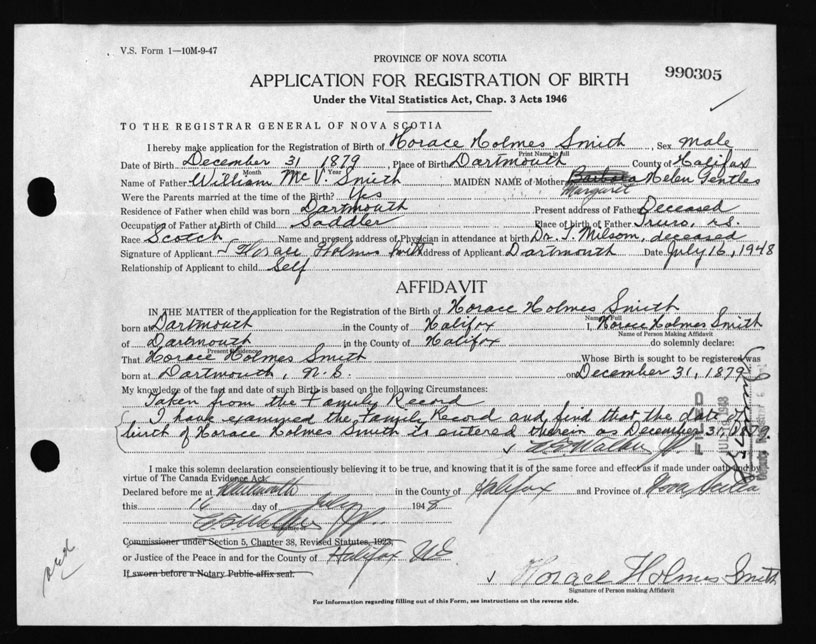 V.S. Form 1—10M-9-47
PROVINCE OF NOVA SCOTIA
990305
APPLICATION FOR REGISTRATION OF BIRTH
Under the Vital Statistics Act, Chap. 3 Acts 1946
TO THE REGISTRAR GENERAL OF NOVA SCOTIA
I hereby make application for the Registration of Birth of Horace Holmes Smith, Sex Male
Print Name in full
Date of Birth December 31 1879, Place of Birth Dartmouth County of Halifax
Month Year
Name of Father William McV. Smith MAIDEN NAME of Mother Barbara Helen Gentles
Margaret
Were the Parents married at the time of the Birth? Yes
Residence of Father when child was born Dartmouth Present address of Father Deceased
Occupation of Father at Birth of Child Saddler Place of birth of Father Truro, N.S.
Race Scotch Name and present address of Physician in attendance at birth Dr. T. Milsom, deceased
Signature of Applicant Horace Holmes Smith Address of Applicant Dartmouth Date July 16, 1948
Relationship of Applicant to child Self
AFFIDAVIT
IN THE MATTER of the application for the Registration of the Birth of Horace Holmes Smith
Name in Full
born at Dartmouth in the County of Halifax I, Horace Holmes Smith
Name of Person Making Affidavit
of Dartmouth in the County of Halifax do solemnly declare:
Present Residence
That Horace Holmes Smith Whose Birth is sought to be registered was
born at Dartmouth, N.S. on December 31, 1879
My knowledge of the fact and date of such Birth is based on the following Circumstances:
Taken from the Family Record
I have examined the Family Record and find that the date of
birth of Horace Holmes Smith is entered therein as December 31, 1879
Walker J.P.
FILED
I make this solemn declaration conscientiously believing it to be true, and knowing that it is of the same force and effect as if made under oath and by
virtue of The Canada Evidence Act.
Declared before me at Dartmouth in the County of Halifax and Province of Nova Scotia
this 16 day of July 1948
Walker J.P.
Commissioner under Section 5, Chapter 38, Revised Statutes, 1923,
or Justice of the Peace in and for the County of Halifax NS
If sworn before a Notary Public affix seal.
Horace Holmes Smith
Signature of Person making Affidavit
For Information regarding filling out of this Form, see instructions on the reverse side.